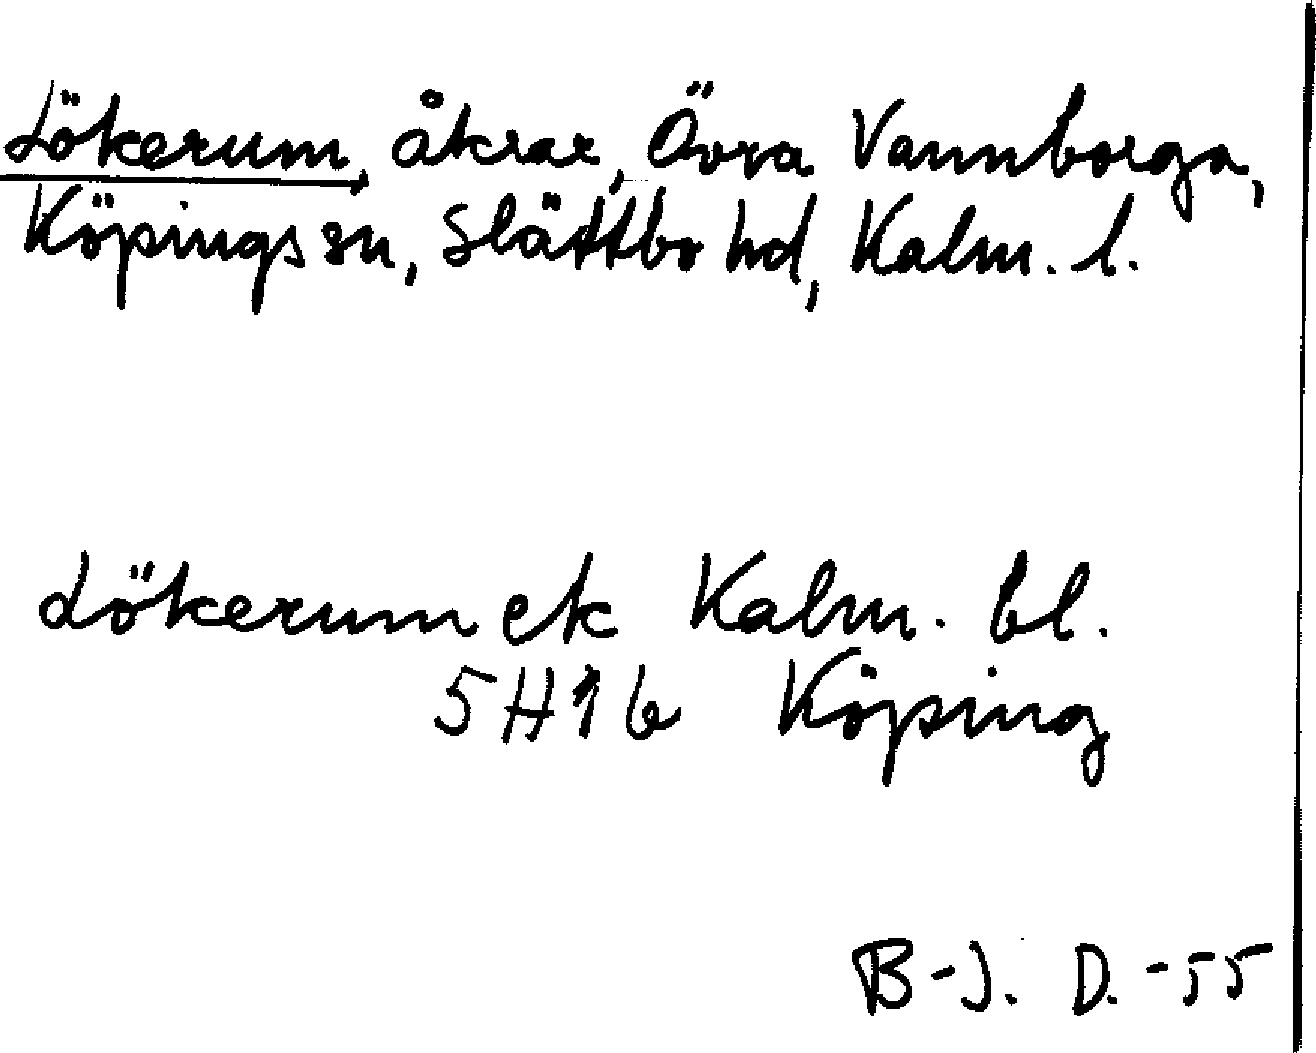 Lökerum, åkrar, Övra Vannborga,
Köpings sn, Slättbo hd, Kalm. l.
Lökerum ek Kalm. bl.
5H1b Köping
B-J. D.-55